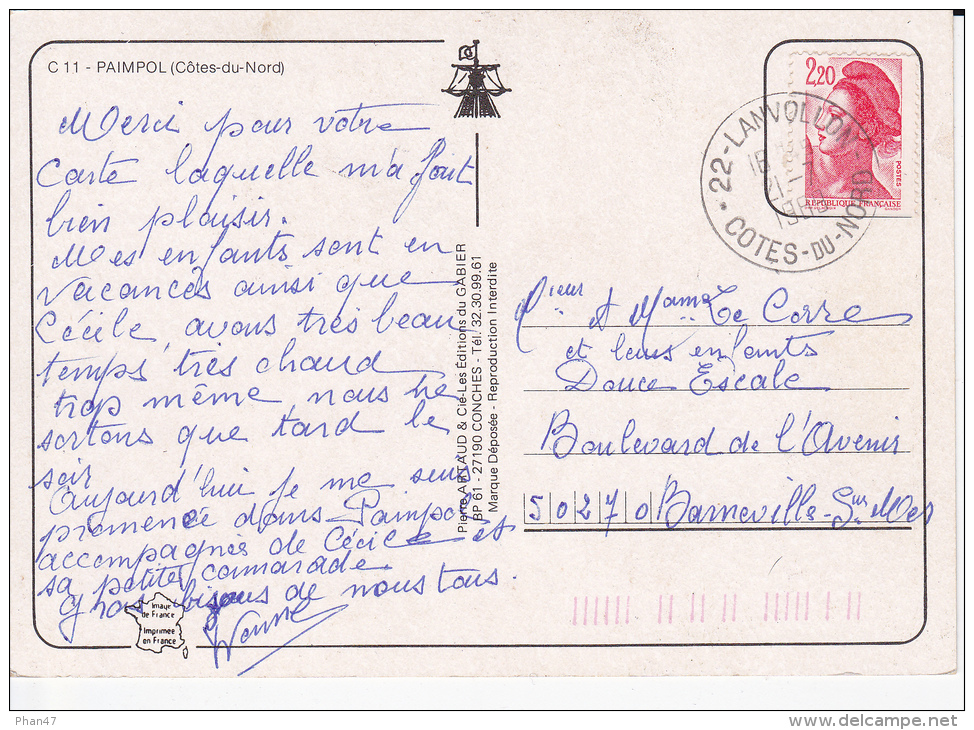 C 11 - PAIMPOL (Côtes-du-Nord)
Merci pour votre
Carte laquelle m'a font
bien plaisir.
Mes enfants sont en
vacances ainsi que
Cécile, avons très beau
temps très chaud
trop même, nous ne
sortons que tard le
soir
Aujourd'hui je me suis
promenée dans Paimpol
accompagnés de Cécile et
sa petite camarade.
Gros bisous de nous tous.
Image
de France
Imprimée
en France
Pierre ARTAUD & Cie-Les Éditions du GABIER
BP 61 - 27190 CONCHES - Tél. 32.30.99.61
Marque Déposée - Reproduction Interdite
2,20
POSTES
RÉPUBLIQUE FRANÇAISE
22-LANVOLLON
COTES-DU-NORD
Mieur et Mame Le Corre
et leurs enfants
Douce Escale
Boulevard de l'Avenir
50270 Barneville-Sur Mer
Phan47
delcampe.net